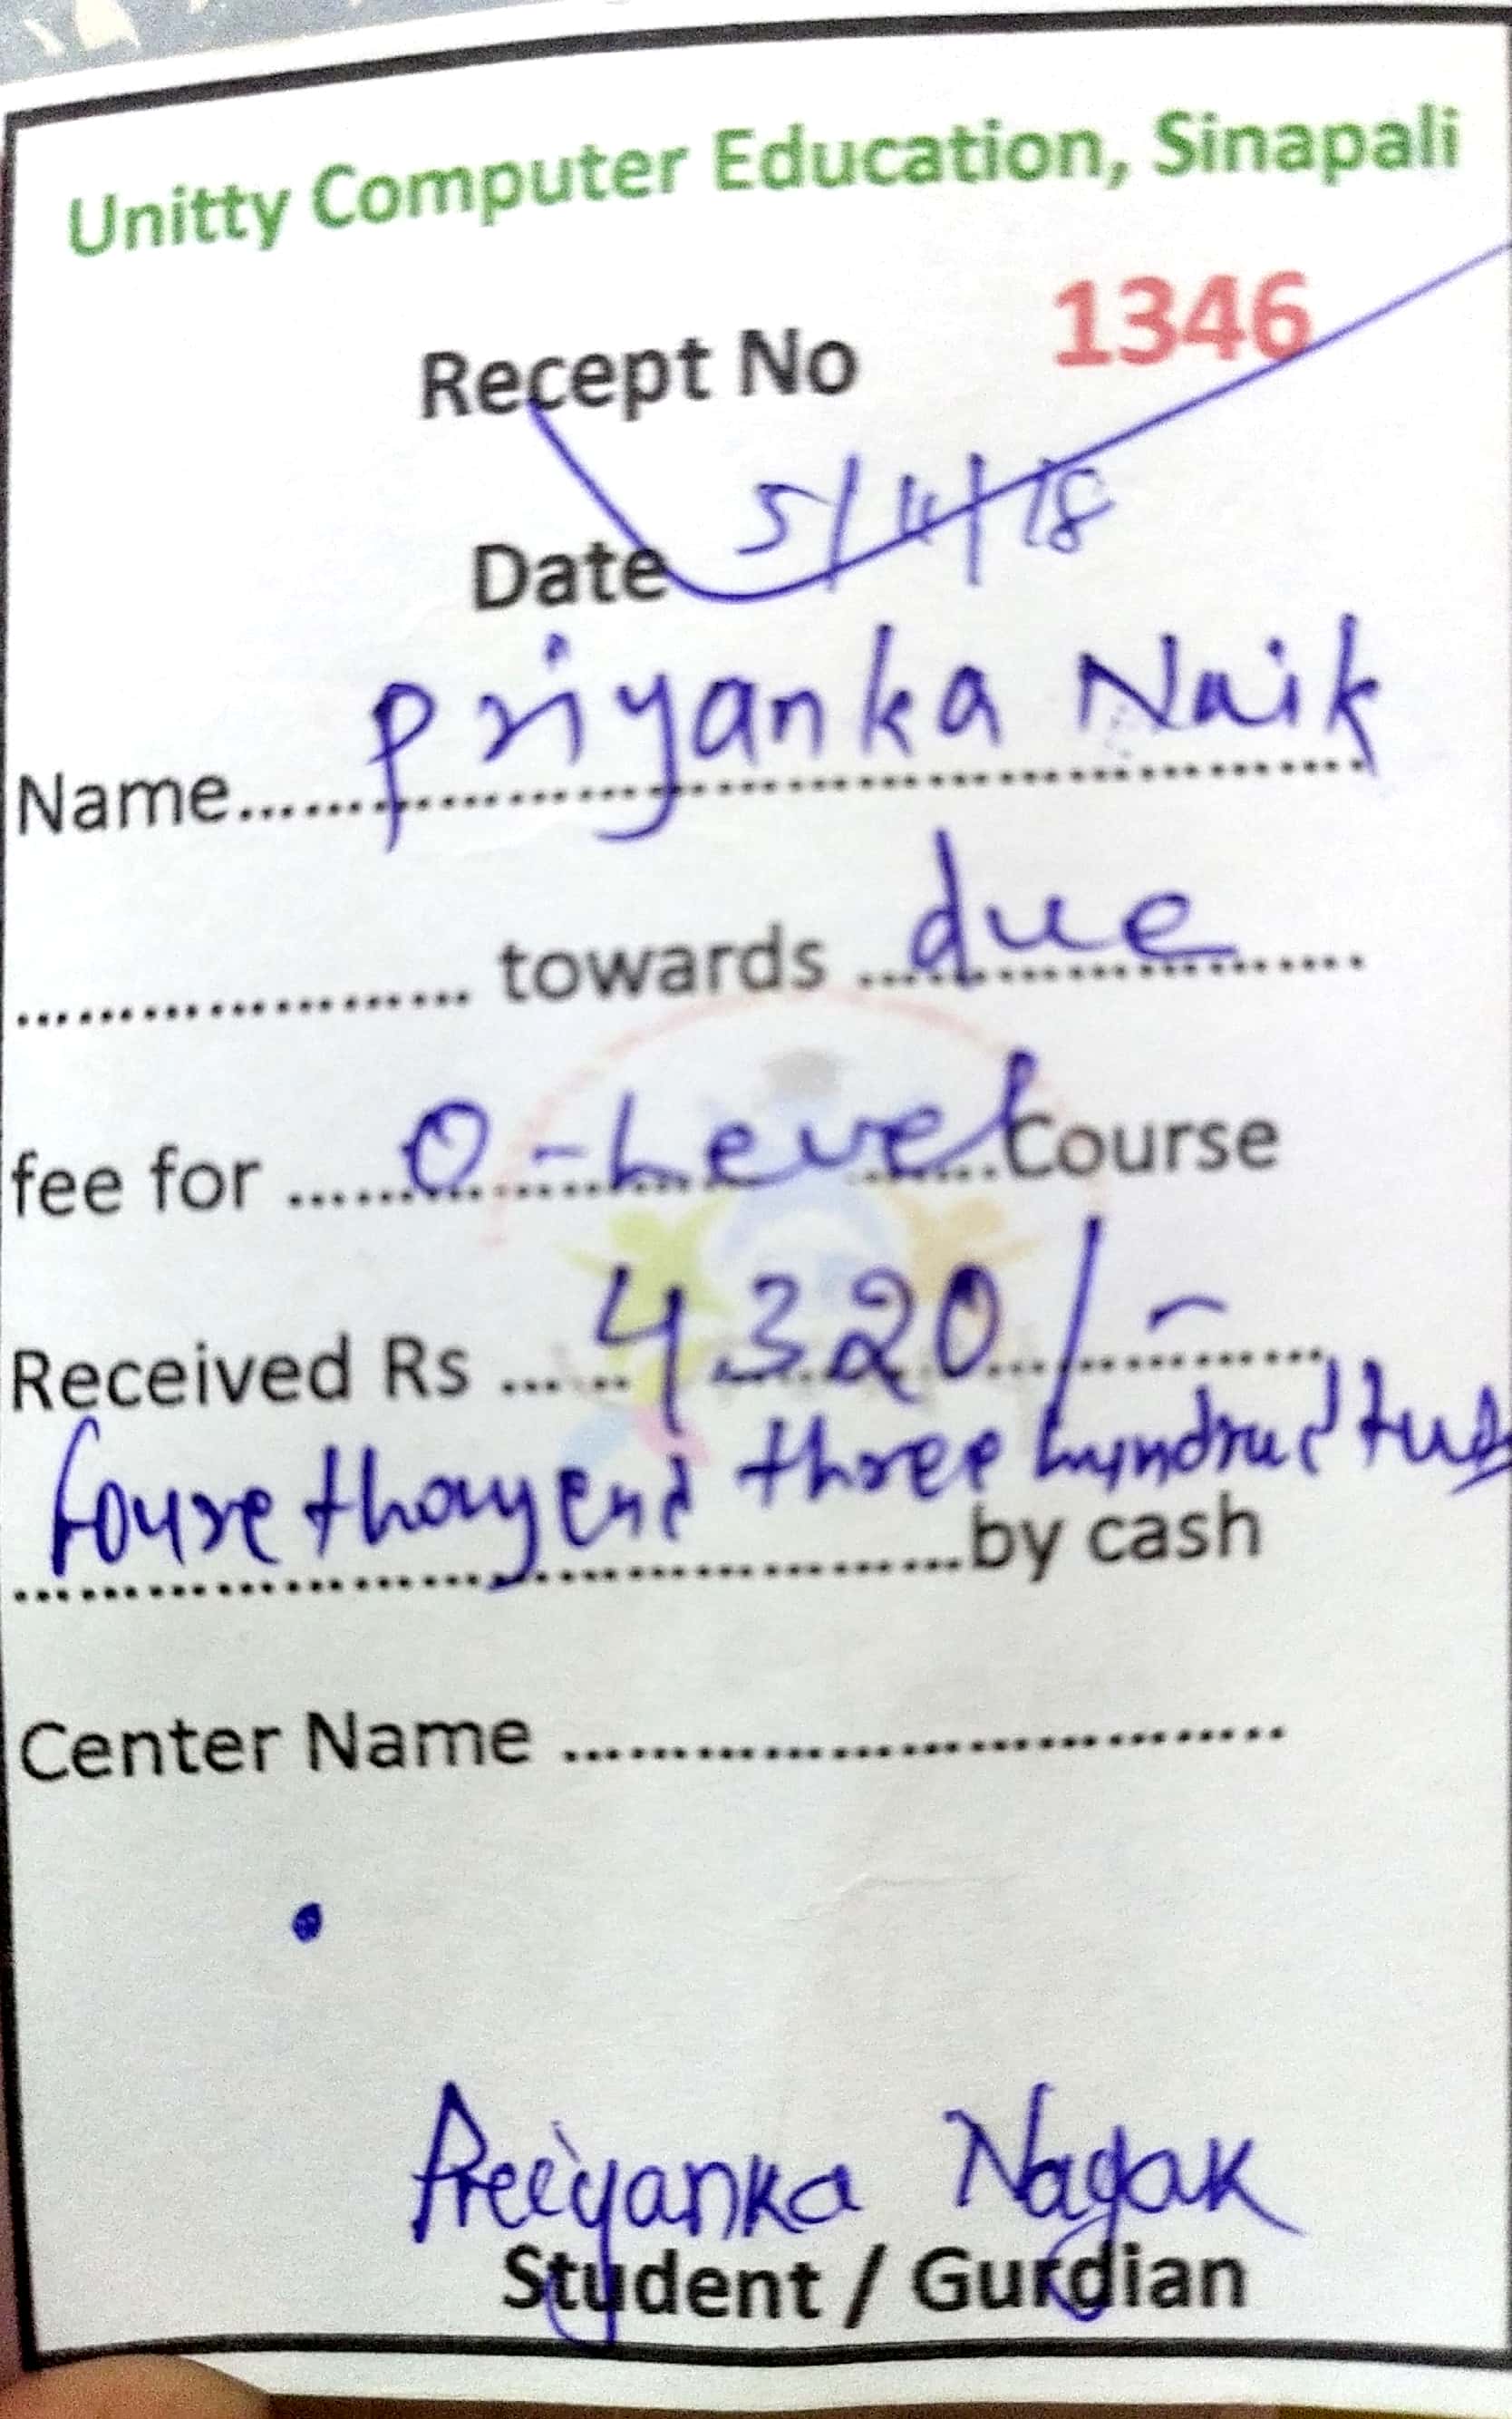 Unitty Computer Education, Sinapali
Recept No 1346
Date 5/11/18
Name........Priyanka Naik
.................... towards ...due...
fee for ......O-Level......Course
Received Rs ......4320/-......
three
......................................by cash
Center Name ................................
Preeyanka Nayak
Student / Gurdian